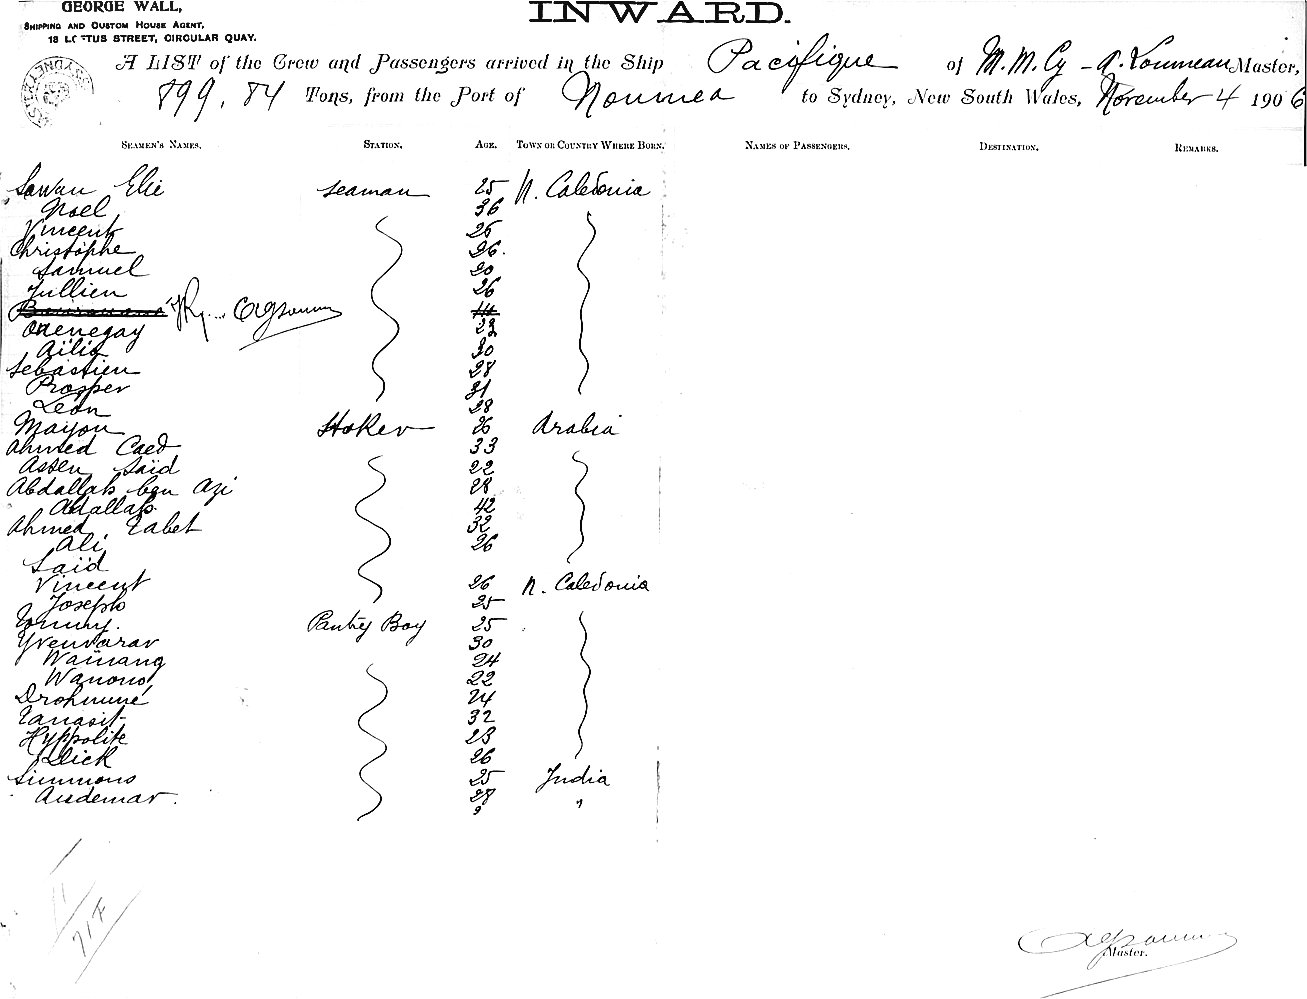 GEORGE WALL,
SHIPPING AND CUSTOM HOUSE AGENT,
18 LOFTUS STREET, CIRCULAR QUAY.
INWARD.
A LIST of the Crew and Passengers arrived in the Ship Pacifique of M.M. Cy - Master,
899.84 Tons, from the Port of Noumea to Sydney, New South Wales, November 4 1906
SEAMEN'S NAMES. STATION. AGE. TOWN OR COUNTRY WHERE BORN. NAMES OF PASSENGERS. DESTINATION. REMARKS.
Elie seaman 25 N. Caledonia
Noel 36
Vincent 26
Christophe 26.
Samuel 20
Jullien 26
Onenegay 23
Ailia 30
Sebastien 28
Prosper 31
Léon 28
Mayou Stoker 26 Arabia
Ahmed Caed 33
Assen Saïd 22
Abdallah ben Azi 28
Abdallah 42
Ahmed Tabet 32
Ali 26
Saïd
Vincent 26 N. Caledonia
Joseph 25
Tommy. Pantry Boy 25
Yvenvarav 30
Wainang 24
Wanono 22
Drohnuné 24
Tanasit 32
Hyppolite 23
Dick 26
Simmons 25 India
Audemar. 28 "
Master.